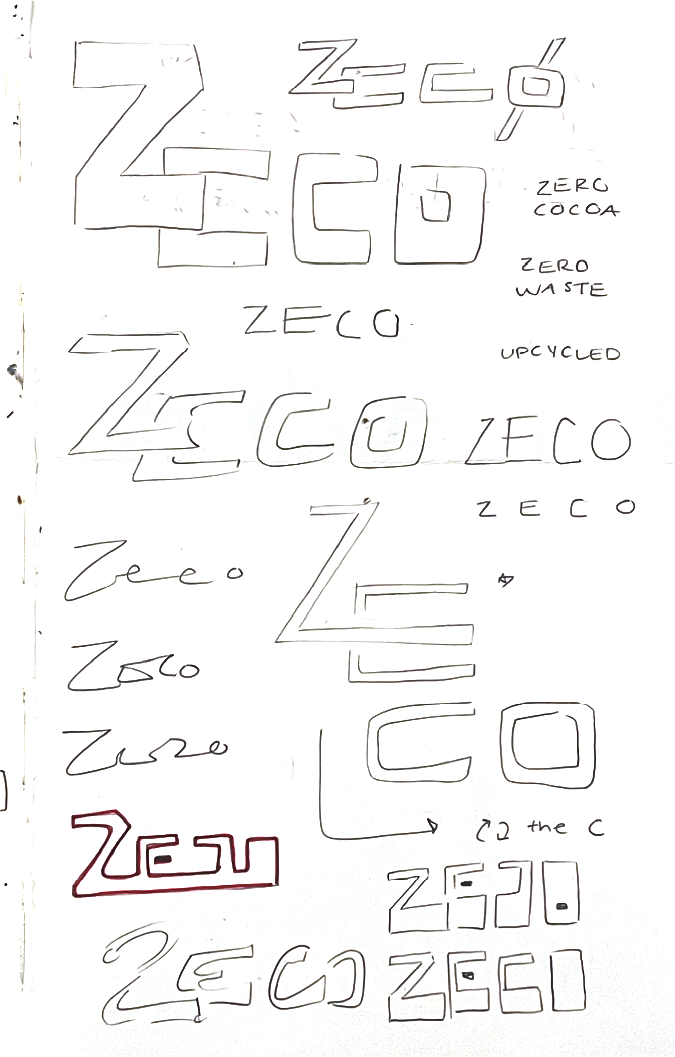 ZECO
ZECO
ZERO
COCOA
ZERO
WASTE
ZECO
UPCYCLED
ZECO
ZECO
Z E C O
ZE
CO
Zeco
Zeco
the C
ZECO
ZECO